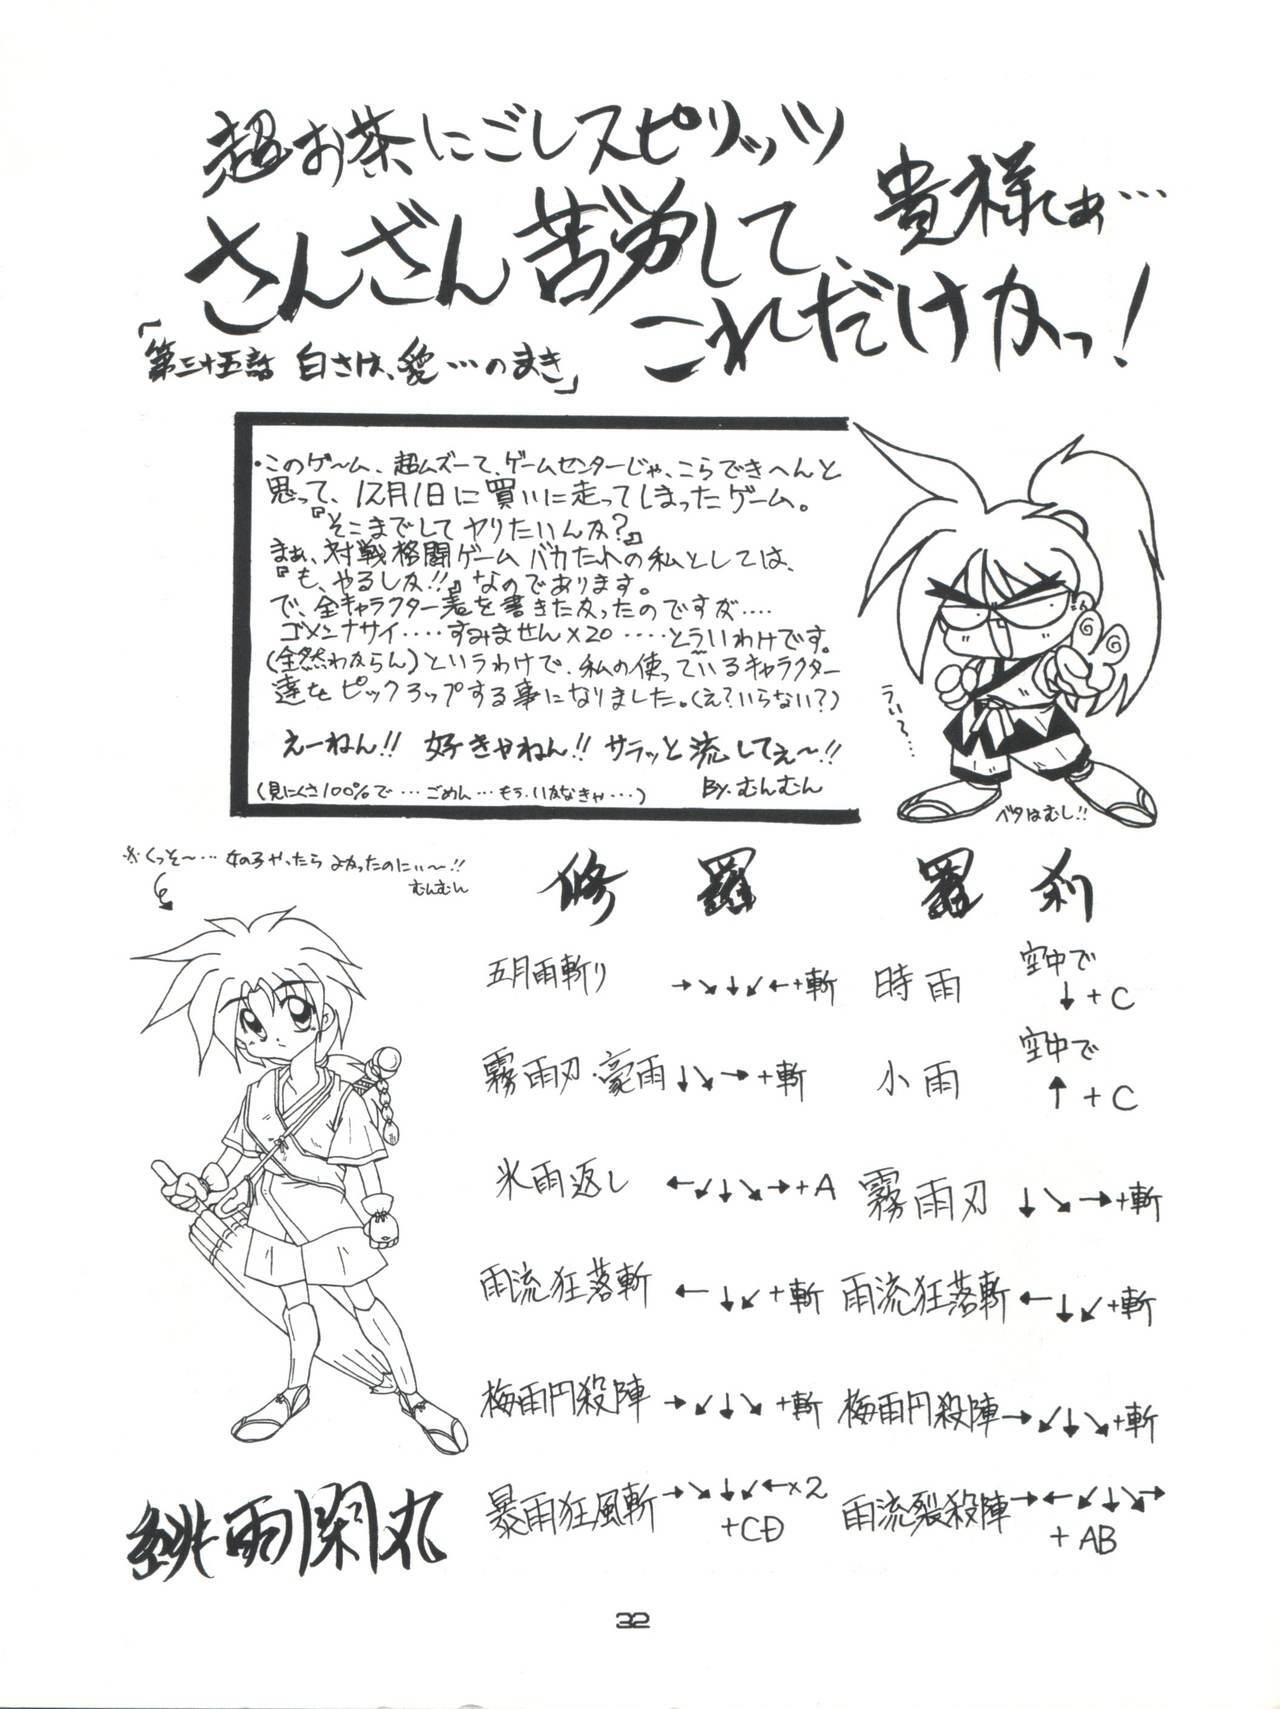 超お茶にごしスピリッツ
さんざん苦労して、貴様しぁ…
これだけかっ!
「第三十五話 白さは、愛…のまき」
・このゲーム、超ムズーて、ゲームセンターじゃ、こらできへんと
思って、12月1日に買いに走ってしまったゲーム。
『そこまでしてヤりたいんか?』
まぁ、対戦格闘ゲームバカたれの私としては、
『も、やるしか!!』なのであります。
で、全キャラクター表を書きたかったのですが....
ゴメンナサイ....すみません×20....とういわけです。
(全然わからん)というわけで、私の使っているキャラクター
達をピックアップする事になりました。(え?いらない?)
えーねん!! 好きやねん!! サラッと流してぇ〜!!
(見にくさ100%で…ごめん…もういかなきゃ…) By.むんむん
うぃ〜…
ベタはむし!!
※くっそ〜…女の子やったらよかったのにぃ〜!!
むんむん
修羅 羅刹
五月雨斬り →↘↓↙←+斬 時雨 空中で↓+C
霧雨刃・豪雨 ↓↘→+斬 小雨 空中で↑+C
氷雨返し ←↙↓↘→+A 霧雨刃 ↓↘→+斬
雨流狂落斬 ←↓↙+斬 雨流狂落斬 ←↓↙+斬
梅雨円殺陣 →↙↓↘+斬 梅雨円殺陣 →↙↓↘+斬
暴雨狂風斬 →↘↓↙←×2+CD 雨流裂殺陣 →←↙↓↘→+AB
緋雨閑丸
32